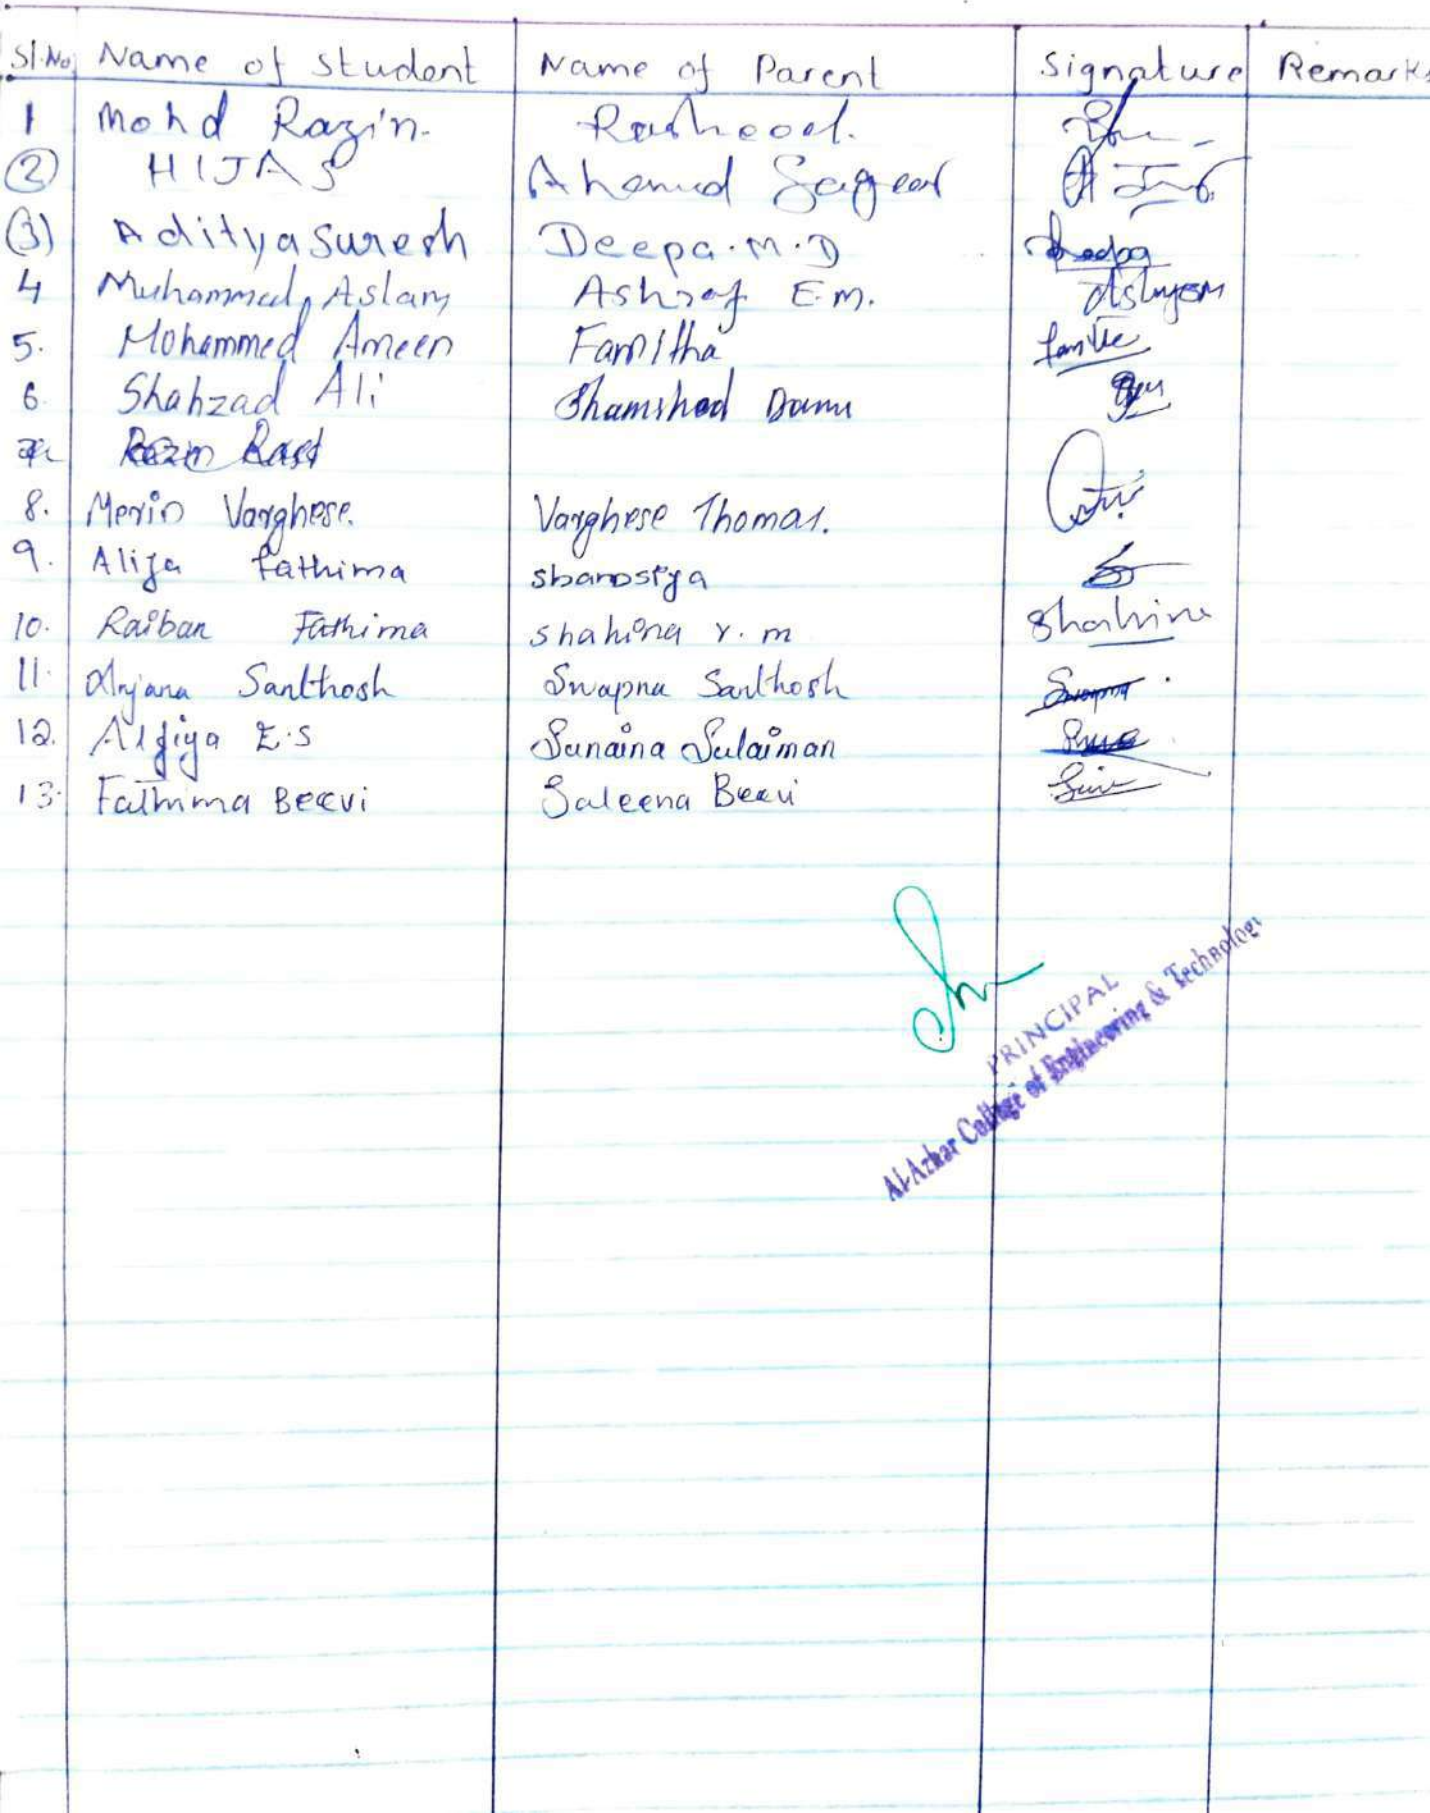 Sl.No Name of Student Name of Parent Signature Remarks
1 Mohd Razin. Rasheed.
2 HIJAS Ahamed Sageer
3 Aditya Suresh Deepa.M.D Deepa
4 Muhammed Aslam Ashraf E.M.
5. Mohammed Ameen Famitha
6. Shahzad Ali Shamshad
8. Merin Varghese. Varghese Thomas.
9. Aliza Fathima
10. Raiban Fathima Shahina Y.M Shahina
11. Anjana Santhosh Swapna Santhosh Swapna
12. Alfiya E.S Sunaina Sulaiman
13. Fathima Beevi Saleena Beevi
PRINCIPAL
Al-Azhar College of Engineering & Technology